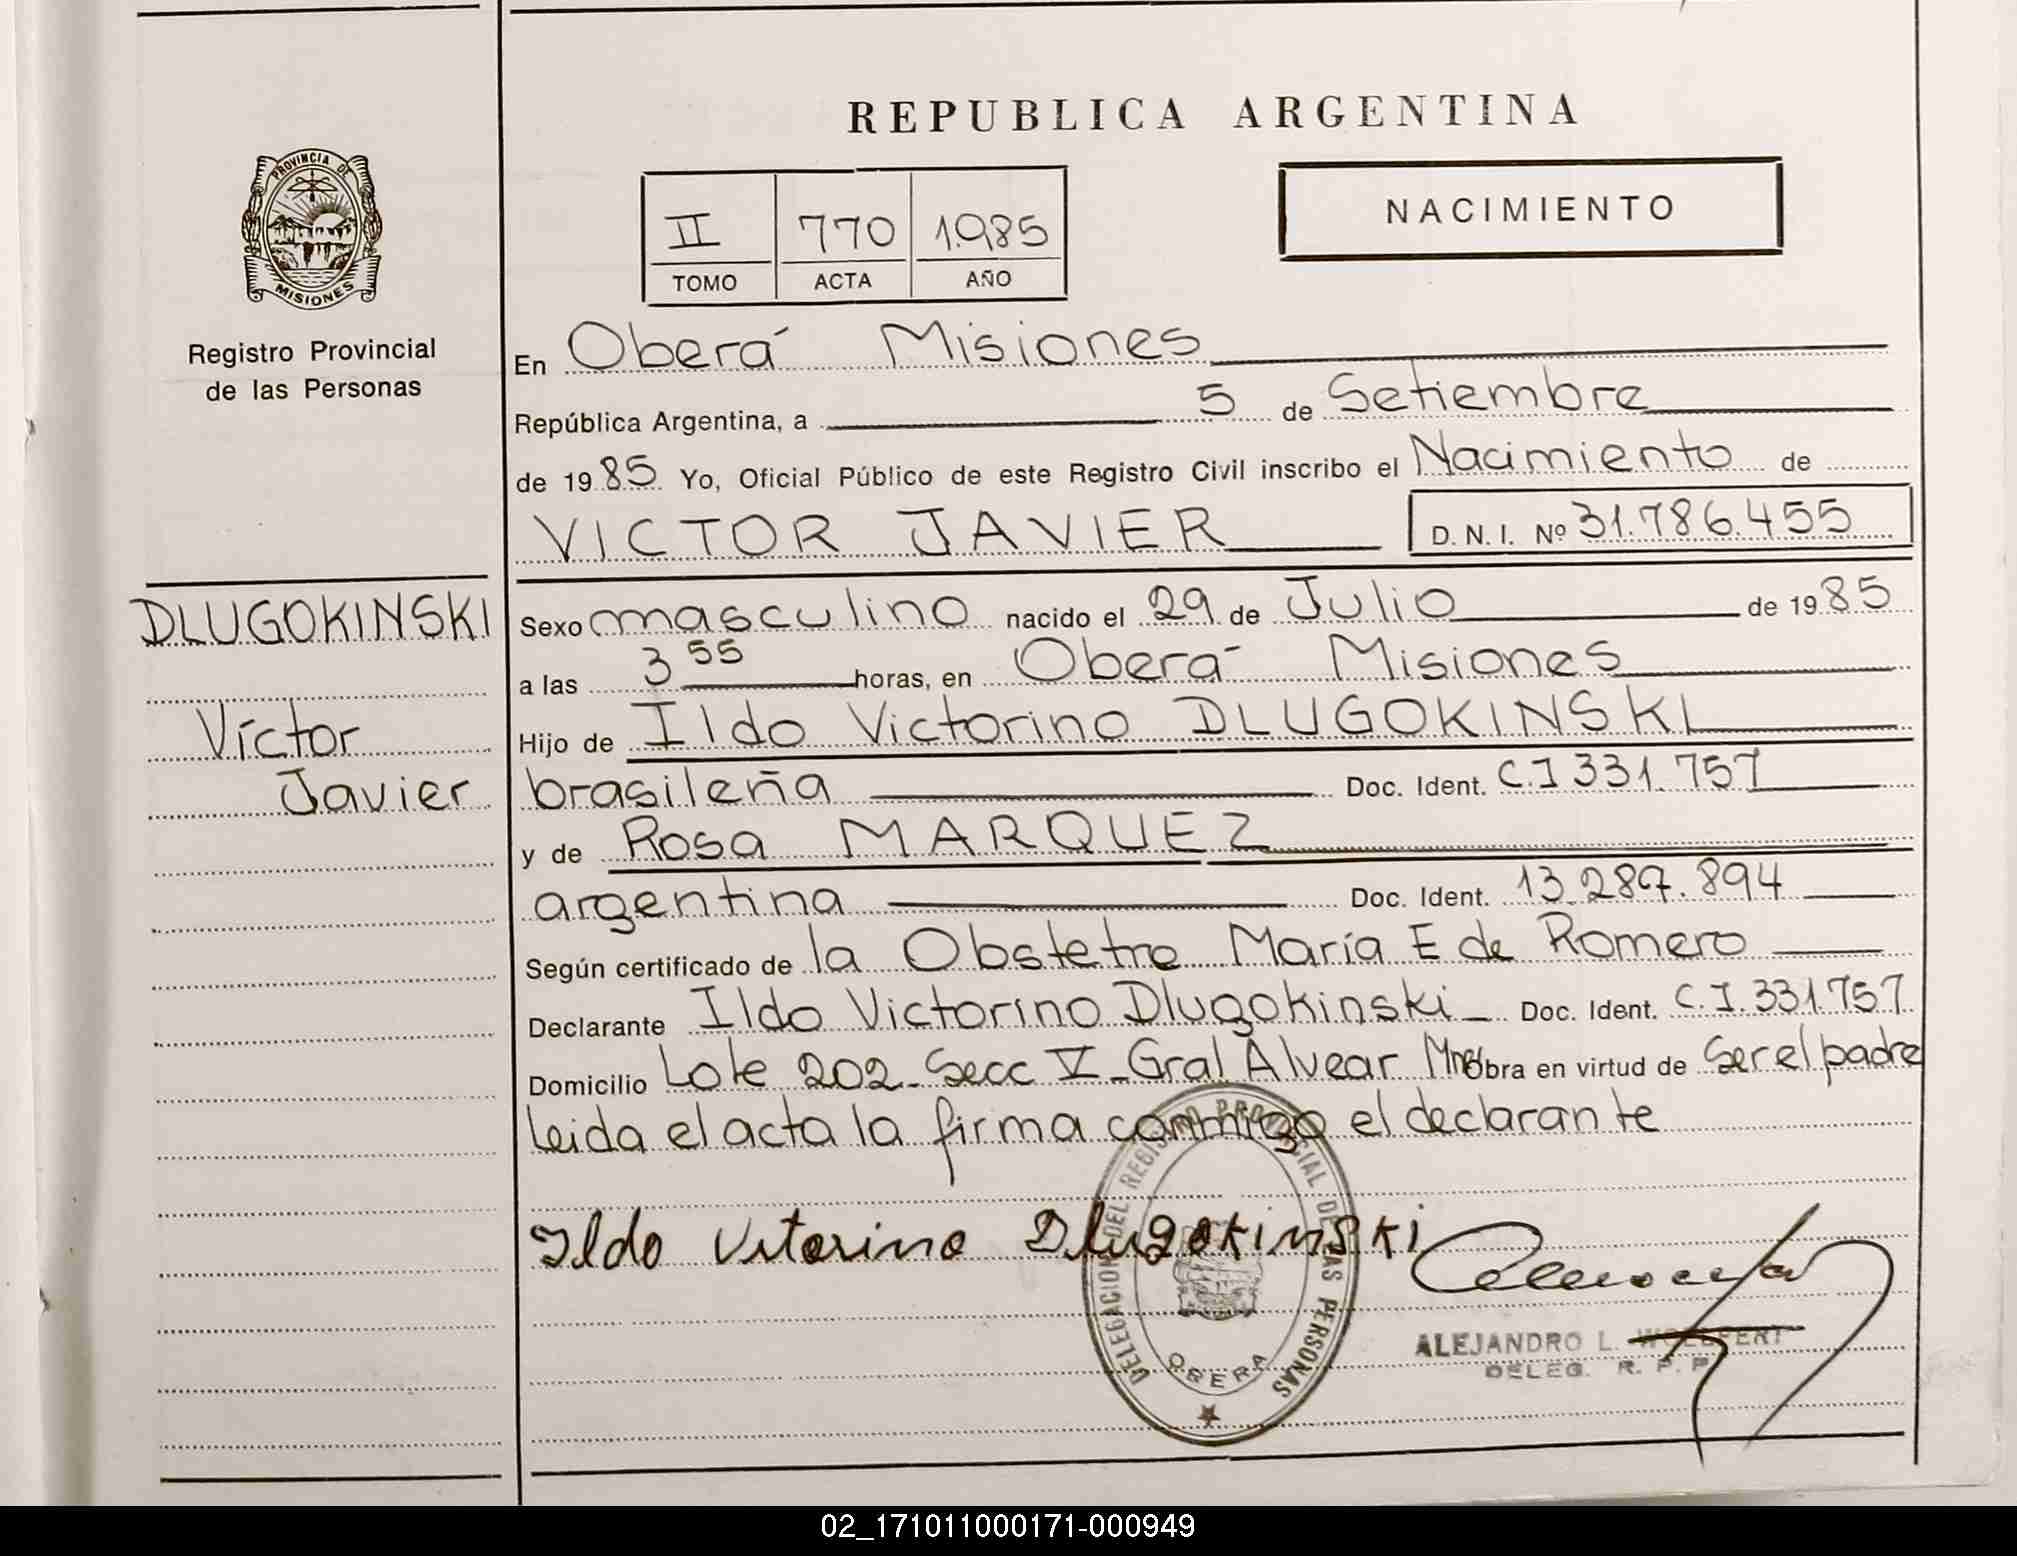 REPUBLICA ARGENTINA
PROVINCIA DE
MISIONES
Registro Provincial
de las Personas
II 770 1.985
TOMO ACTA AÑO
NACIMIENTO
En Oberá Misiones
República Argentina, a 5 de Setiembre
de 19 85 Yo, Oficial Público de este Registro Civil inscribo el Nacimiento de
VICTOR JAVIER D.N.I. Nº 31.786.455
DLUGOKINSKI
Víctor
Javier
Sexo masculino nacido el 29 de Julio de 19 85
a las 3 55 horas, en Oberá Misiones
Hijo de Ildo Victorino DLUGOKINSKI
brasileña Doc. Ident. C.I 331.757
y de Rosa MARQUEZ
argentina Doc. Ident. 13.287.894
Según certificado de la Obstetra María E de Romero
Declarante Ildo Victorino Dlugokinski Doc. Ident. C.I. 331.757
Domicilio Lote 202 - Secc V - Gral Alvear Mnes Obra en virtud de Ser el padre
leida el acta la firma conmigo el declarante
Ildo Vitorino Dlugokinski
DELEGACION DEL REGISTRO PROVINCIAL DE LAS PERSONAS
OBERA
ALEJANDRO L.
DELEG. R. P. P.
02_171011000171-000949